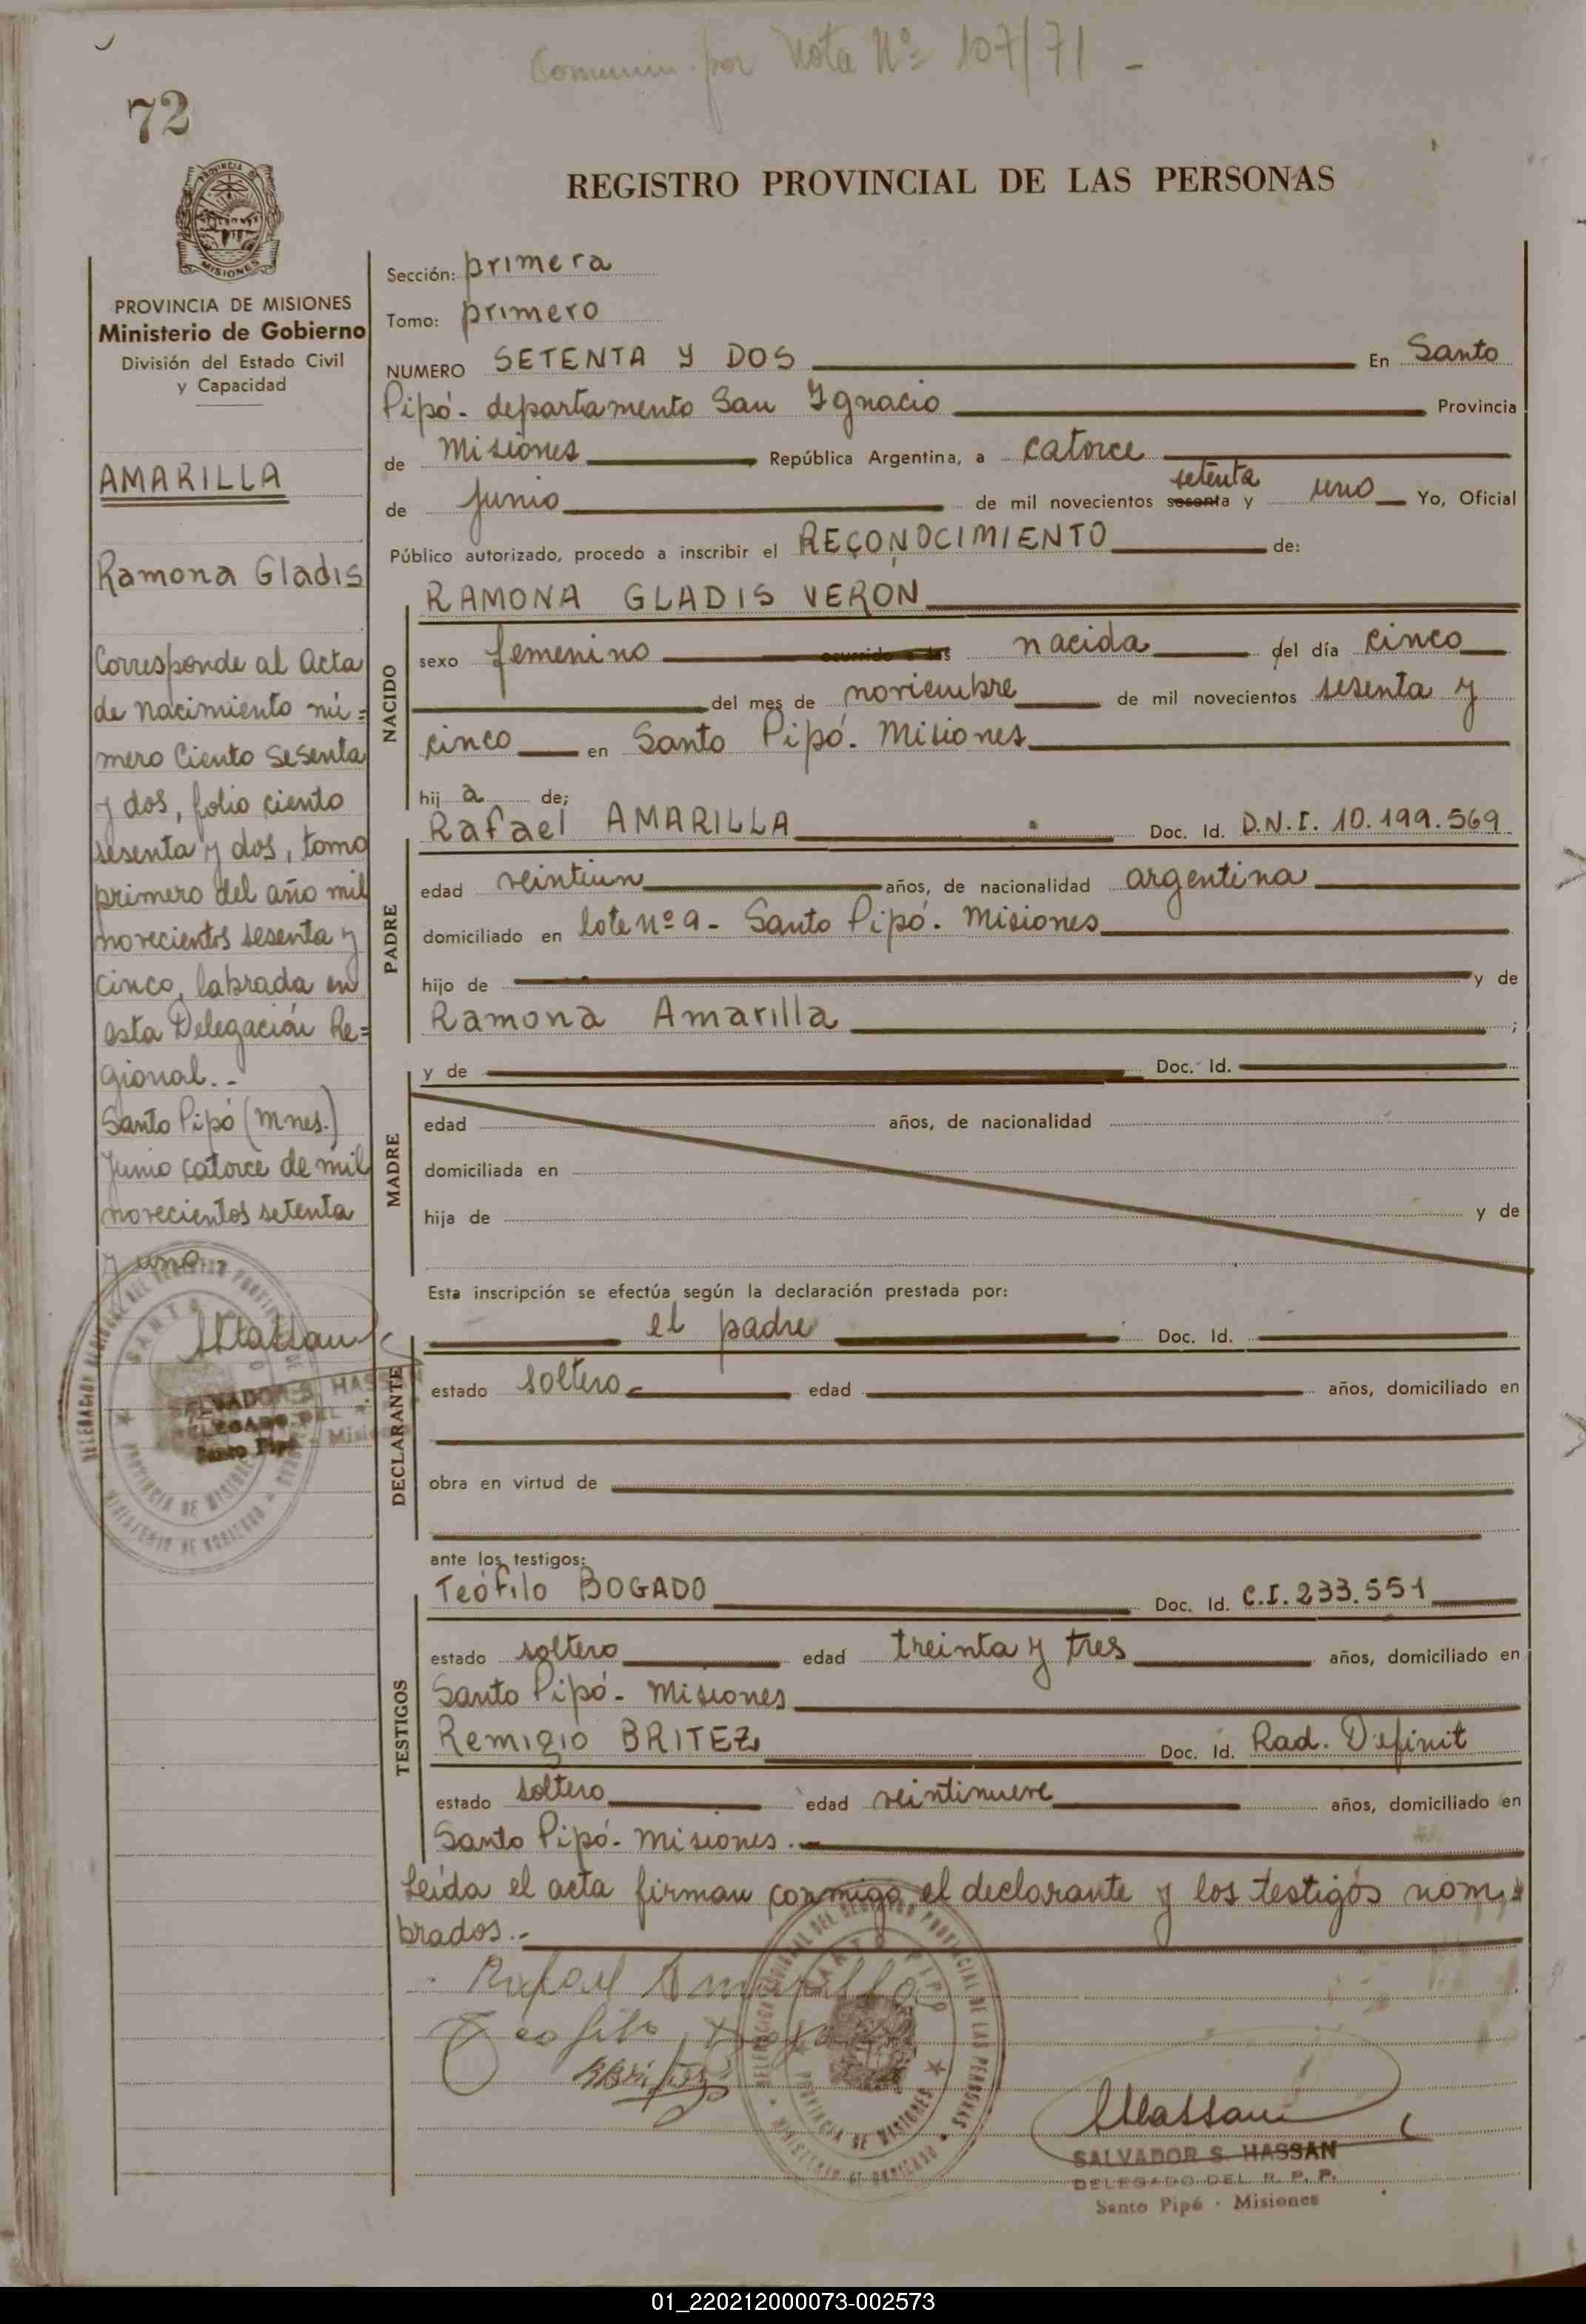 por Nota Nº 107/71 -
72
PROVINCIA DE
MISIONES
REGISTRO PROVINCIAL DE LAS PERSONAS
PROVINCIA DE MISIONES
Ministerio de Gobierno
División del Estado Civil
y Capacidad
AMARILLA
Ramona Gladis
Corresponde al Acta
de nacimiento nú=
mero Ciento Sesenta
y dos, folio ciento
sesenta y dos, tomo
primero del año mil
novecientos sesenta y
cinco, labrada en
esta Delegación Re=
gional.-
Santo Pipó (Mnes.)
Junio catorce de mil
novecientos setenta
y uno.-
SALVADOR S. HASSAN
DELEGADO DEL
Santo Pipó - Misiones
Sección: primera
Tomo: primero
NUMERO SETENTA Y DOS En Santo
Pipó- departamento San Ignacio Provincia
de Misiones República Argentina, a catorce
setenta
de Junio de mil novecientos sesenta y uno Yo, Oficial
Público autorizado, procedo a inscribir el RECONOCIMIENTO de:
RAMONA GLADIS VERON
NACIDO
sexo femenino ocurrido a las nacida del día cinco
del mes de noviembre de mil novecientos sesenta y
cinco en Santo Pipó. Misiones
hij a de;
Rafael AMARILLA Doc. Id. D.N.I. 10.199.569
PADRE
edad veintiun años, de nacionalidad argentina
domiciliado en lote nº 9- Santo Pipó. Misiones
hijo de y de
Ramona Amarilla ;
y de Doc. Id.
MADRE
edad años, de nacionalidad
domiciliada en
hija de y de
Esta inscripción se efectúa según la declaración prestada por:
el padre Doc. Id.
DECLARANTE
estado soltero edad años, domiciliado en
obra en virtud de
ante los testigos:
Teófilo BOGADO Doc. Id. C.I. 233.551
TESTIGOS
estado soltero edad treinta y tres años, domiciliado en
Santo Pipó- Misiones
Remigio BRITEZ Doc. Id. Rad. Definit
estado soltero edad veintinueve años, domiciliado en
Santo Pipó- Misiones.-
Leída el acta firman conmigo el declarante y los testigos nom=
brados.-
Rafael Amarilla
Teofilo
SALVADOR S. HASSAN
DELEGADO DEL R. P. P.
Santo Pipó - Misiones
01_220212000073-002573